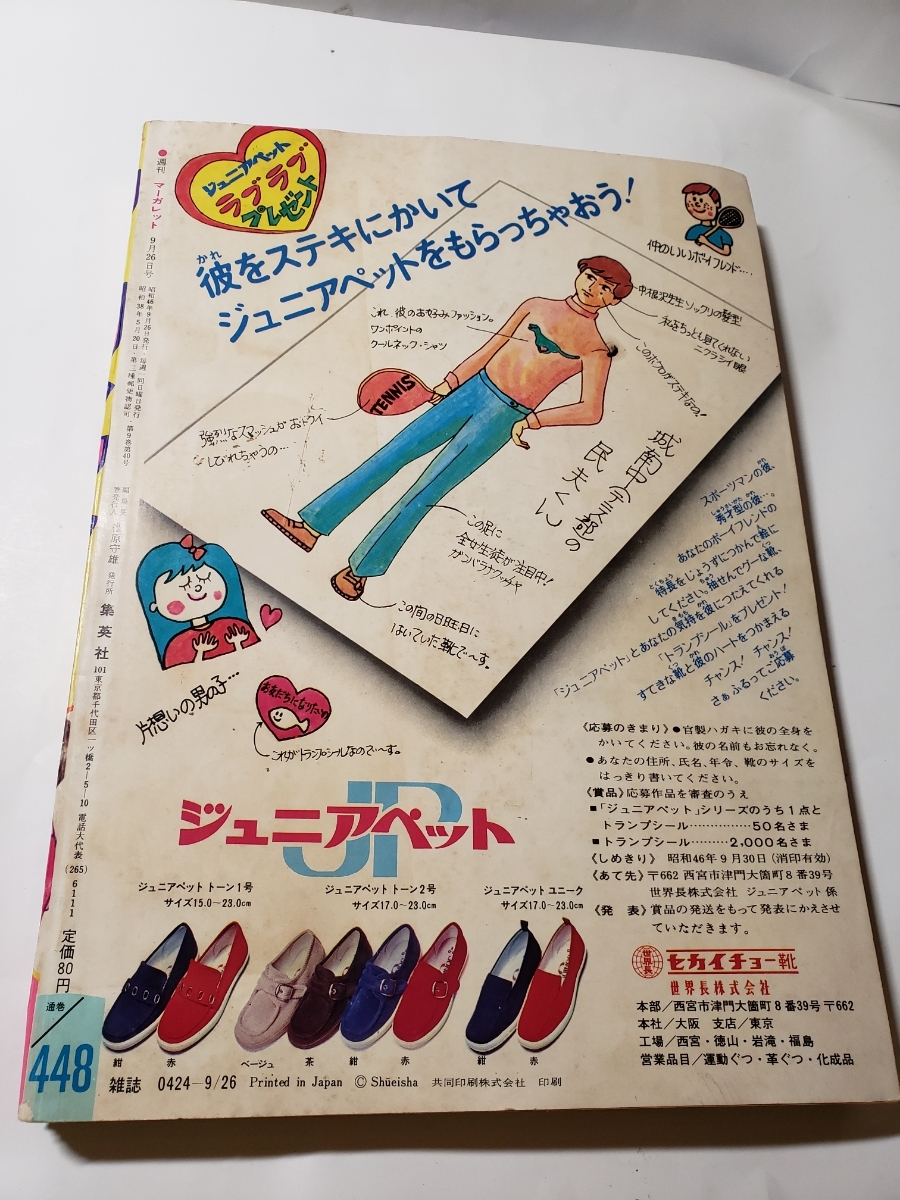 ●週刊 マーガレット 9月26日号
昭和46年9月26日発行・毎週一回日曜日発行
昭和38年5月20日・第三種郵便物認可 第9巻第40号
守雄 発行所 集英社 101東京都千代田区一ツ橋2−5−10 電話大代表(265)6111 定価80円
ジュニアペット
ラブラブ
プレゼント
彼をステキにかいて
かれ
ジュニアペットをもらっちゃおう!
仲のいいボーイフレンド…
中根沢先生ソックリの髪型
私をちっとも見てくれない
ニクラシイ眼
このホクロがステキなの!
これ、彼のお好みファッション。
ワンポイントの
クールネック・シャツ
TENNIS
強烈なスマッシュがおトクイ
しびれちゃうの…
城南中(今文部の
民夫くん
この足に
全女生徒が注目中!
ガンバラナクッチャ
この間の日旺日に
はいていた靴で〜す。
片想いの男の子…
お友だちになりたいの
これがトランプシールなので〜す。
スポーツマンの彼、
秀才型の彼…。
しゅうさいがた かれ
あなたのボーイフレンドの
特長をじょうずにつかんで絵に
とくちょう
してください。抽せんでグーな靴、
「ジュニアペット」とあなたの気持を彼につたえてくれる
「トランプシール」をプレゼント!
すてきな靴と彼のハートをつかまえる
チャンス!チャンス!
さぁふるってご応募
ください。
《応募のきまり》●官製ハガキに彼の全身を
かいてください。彼の名前もお忘れなく。
●あなたの住所、氏名、年令、靴のサイズを
はっきり書いてください。
《賞品》応募作品を審査のうえ
■「ジュニアペット」シリーズのうち1点と
トランプシール……………50名さま
■トランプシール………2,000名さま
《しめきり》昭和46年9月30日(消印有効)
《あて先》〒662 西宮市津門大箇町8番39号
世界長株式会社 ジュニアペット係
《発 表》賞品の発送をもって発表にかえさせ
ていただきます。
JP
ジュニアペット
ジュニアペット トーン1号
サイズ15.0〜23.0cm
ジュニアペット トーン2号
サイズ17.0〜23.0cm
ジュニアペット ユニーク
サイズ17.0〜23.0cm
紺 赤 ベージュ 茶 紺 赤 紺 赤
世界長
セカイチョー靴
世界長株式会社
本部/西宮市津門大箇町8番39号〒662
本社/大阪 支店/東京
工場/西宮・徳山・岩滝・福島
営業品目/運動ぐつ・革ぐつ・化成品
通巻
448
雑誌 0424−9/26 Printed in Japan © Shūeisha 共同印刷株式会社 印刷